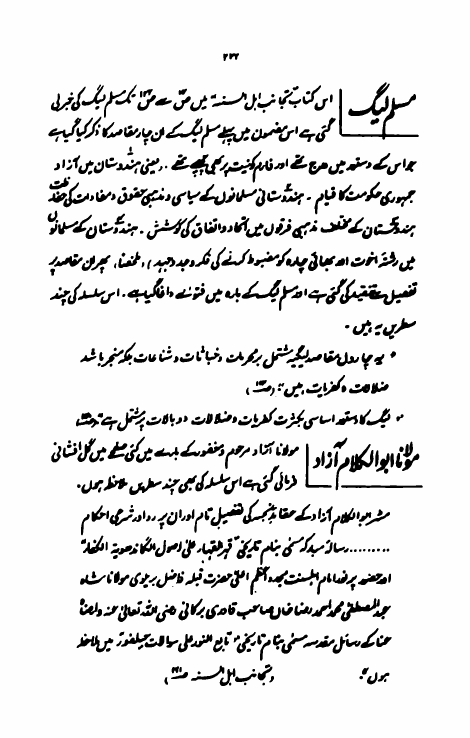 ۲۳۲
مسلم لیگ
اس کتاب تجانب اہل السنۃ میں ص سے ص تک مسلم لیگ کی خبر لی
گئی ہے اس مضمون میں پہلے مسلم لیگ کے ان چار مقاصد کا ذکر کیا گیا ہے
جو اس کے دستور میں درج تھے اور فارم رکنیت پر بھی چھپے تھے ۔ (یعنی ہندوستان میں آزاد
جمہوری حکومت کا قیام ۔ ہندوستانی مسلمانوں کے سیاسی و مذہبی حقوق و مفادات کی حفاظت
ہندوستان کے مختلف مذہبی فرقوں میں اتحاد و اتفاق کی کوشش ۔ ہندوستان کے مسلمانوں
میں رشتہ اخوت اور بھائی چارہ کو مضبوط کرنے کی فکر و جدوجہد) ، پھر ان مقاصد پر
تفصیل سے تنقید کی گئی ہے اور مسلم لیگ کے بارہ میں فتویٰ دیا گیا ہے ۔ اس سلسلہ کی چند
سطریں یہ ہیں ۔
" یہ چاروں مقاصد لیگیہ مشتمل بر محرمات و خباثات و شناعات بلکہ منجر باشد
ضلالات و کفریات ہیں "
" لیگ کا دستور اساسی بکثرت کفریات و ضلالات و وبالات پر مشتمل ہے "
مولانا ابوالکلام آزاد
مولانا آزاد مرحوم و مغفور کے بارے میں کئی صفحے میں گل افشانی
فرمائی گئی ہے اس سلسلہ کی بھی چند سطریں ملاحظہ ہوں ۔
مسٹر ابوالکلام آزاد کے عقائد نجسہ کی تفصیل تام اور ان پر رد اور شرعی احکام
.......... رسالہ مبارکہ مسمیٰ بنام تاریخی قہر القہار علیٰ اصول الکاندھویۃ الکفار
اور حضور پر نور امام اہلسنت مجدد اعظم اعلیٰ حضرت قبلہ فاضل بریلوی مولانا شاہ
عبد المصطفیٰ محمد احمد رضا خاں صاحب قادری برکاتی رضی اللہ تعالیٰ عنہ و ارضاہ
عنا کے رسائل مقدسہ مسمیٰ بنام تاریخی میں ملاحظہ
ہوں " (تجانب اہل السنہ ص)